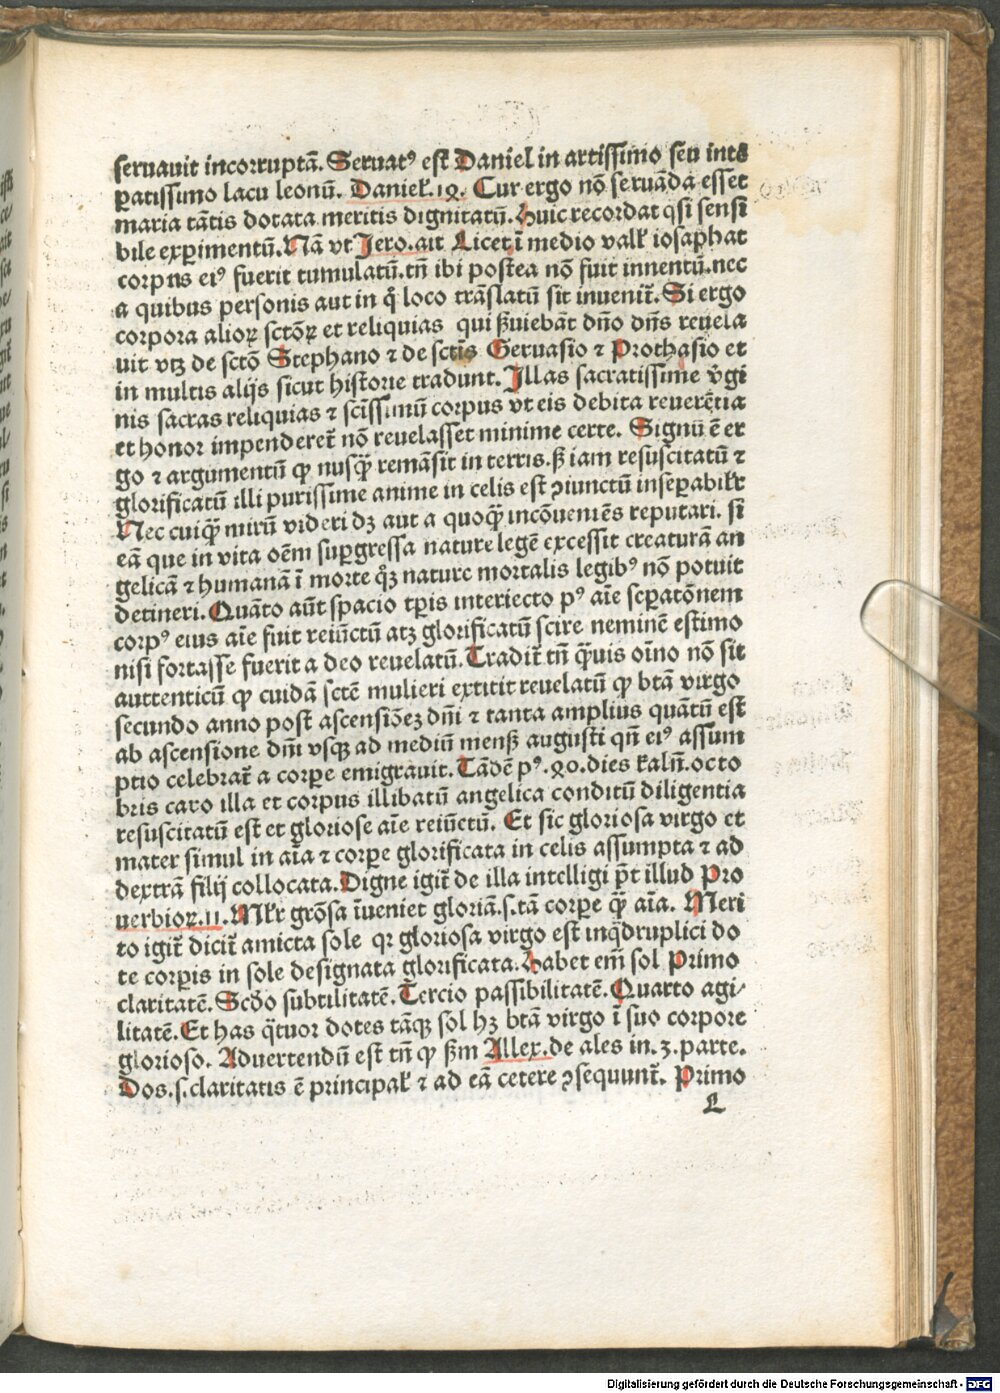 seruauit incorruptã. Seruatꝰ est Daniel in artissimo seu inte
ꝑatissimo lacu leonũ. Danieł.1ꝯ. Cur ergo nõ seruãda esset
maria tãtis dotata meritis dignitatũ. Huic recordat qͥsi sensi
bile exꝑimentũ. Nã vt Jero. ait Licet ĩ medio valł iosaphat
corpus eiꝰ fuerit tumulatũ. tñ ibi postea nõ fuit inuentũ. nec
a quibus personis aut in qͦ loco trãslatũ sit inuenit̃. Si ergo
corpora alioꝝ sctõꝝ et reliquias qui ẞuiebãt dño dñs reuela
uit vtꝫ de sctõ Stephano ⁊ de sctis Geruasio ⁊ Prothasio et
in multis alijs sicut historie tradunt. Illas sacratissime v̾gi
nis sacras reliquias ⁊ scissimũ corpus vt eis debita reuerẽtia
et honor impenderet̃ nõ reuelasset minime certe. Signũ ẽ er
go ⁊ argumentũ ꝙ nusqͣ̃ remãsit in terris. ß iam resuscitatũ ⁊
glorificatũ illi purissime anime in celis est ꝯiunctũ inseꝑabilr̃
Nec cuiqͣ̃ mirũ videri dꝫ aut a quoqͣ̃ incõueniẽs reputari. si
eã que in vita oẽm suꝑgressa nature legẽ excessit creaturã an
gelicã ⁊ humanã ĩ morte qͦꝫ nature mortalis legibꝰ nõ potuit
detineri. Quãto aũt spacio tꝑis interiecto pꝰ aĩe seꝑatõnem
corpꝰ eius aĩe fuit reiũctũ atꝫ glorificatũ scire neminẽ estimo
nisi fortasse fuerit a deo reuelatũ. Tradit̃ tñ qͣ̃uis oĩno nõ sit
auttenticũ ꝙ cuidã sctẽ mulieri extitit reuelatũ ꝙ btã virgo
secundo anno post ascensiõeꝫ dñi ⁊ tanta amplius quãtũ est
ab ascensione dñi vsqꝫ ad mediũ menß augusti qñ eiꝰ assum
ptio celebrat̃ a corꝑe emigrauit. Tãdẽ pꝰ .ꝯ0. dies kalñ. octo
bris caro illa et corpus illibatũ angelica conditũ diligentia
resuscitatũ est et gloriose aĩe reiũctũ. Et sic gloriosa virgo et
mater simul in aĩa ⁊ corꝑe glorificata in celis assumpta ⁊ ad
dextrã filij collocata. Digne igit̃ de illa intelligi põt illud Pro
uerbioꝝ.11. Mlr̃ grõsa ĩueniet gloriã.s.tã corꝑe qͣ̃ aĩa. Meri
to igit̃ dicit̃ amicta sole qꝛ gloriosa virgo est inqͣdruplici do
te corꝑis in sole designata glorificata. Habet em̃ sol Primo
claritatẽ. Scd̃o subtilitatẽ. Tercio passibilitatẽ. Quarto agi⸗
litatẽ. Et has qͣtuor dotes tãqꝫ sol hꝫ btã virgo ĩ suo corpore
glorioso. Aduertendũ est tñ ꝙ ẞm Allex. de ales in .3. parte.
Dos.s.claritatis ẽ principał ⁊ ad eã cetere ꝯsequunt̃. Primo
L
Digitalisierung gefördert durch die Deutsche Forschungsgemeinschaft - DFG